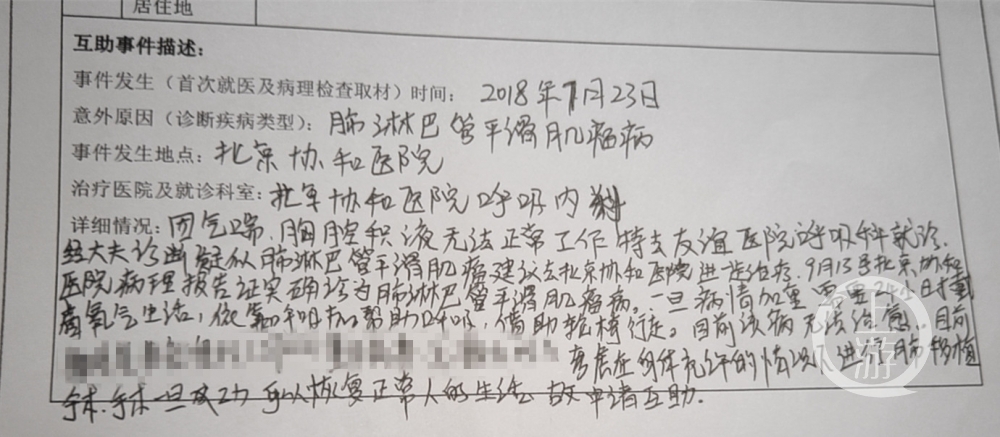 居住地
互助事件描述：
事件发生（首次就医及病理检查取材）时间：2018年7月23日
意外原因（诊断疾病类型）：肺淋巴管平滑肌瘤病
事件发生地点：北京协和医院
治疗医院及就诊科室：北京协和医院呼吸内科
详细情况：因气喘，胸腔积液无法正常工作 特去友谊医院呼吸科就诊.
经大夫诊断疑似肺淋巴管平滑肌瘤建议去北京协和医院进一步治疗.9月13号北京协和
医院病理报告证实确诊为肺淋巴管平滑肌瘤病。一旦病情加重 需要24小时戴
氧气生活，依靠呼吸机帮助呼吸，借助轮椅行走。目前该病无法治愈.目前
考虑在身体允许的情况下进行肺移植
手术.手术一旦成功 可以恢复正常人的生活 故申请互助.
上游